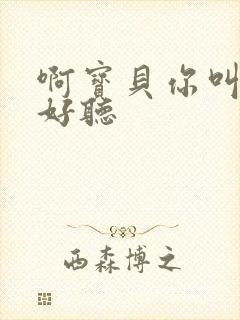 啊寶貝你叫
好聽
西森博之